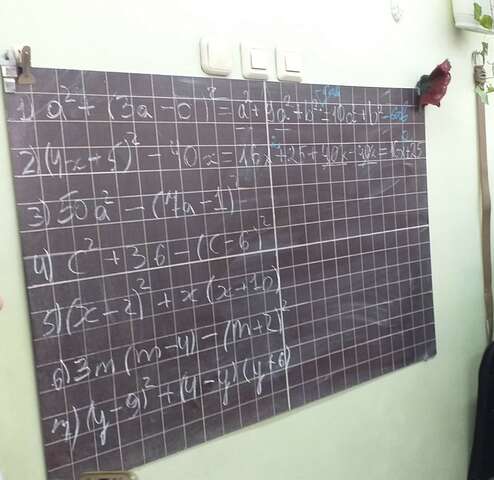 1) a² + (3a - b)² = a² + 9a² + b² = 10a² + b² - 6ab
2) (4x + 5)² - 40x = 16x² + 25 + 40x - 40x = 16x² + 25
3) 50a² - (7a - 1)²
4) c² + 36 - (c - 6)²
5) (x - 2)² + x(x + 10)
6) 3m(m - 4) - (m + 2)²
7) (y - 9)² + (4 - y)(y + 6)